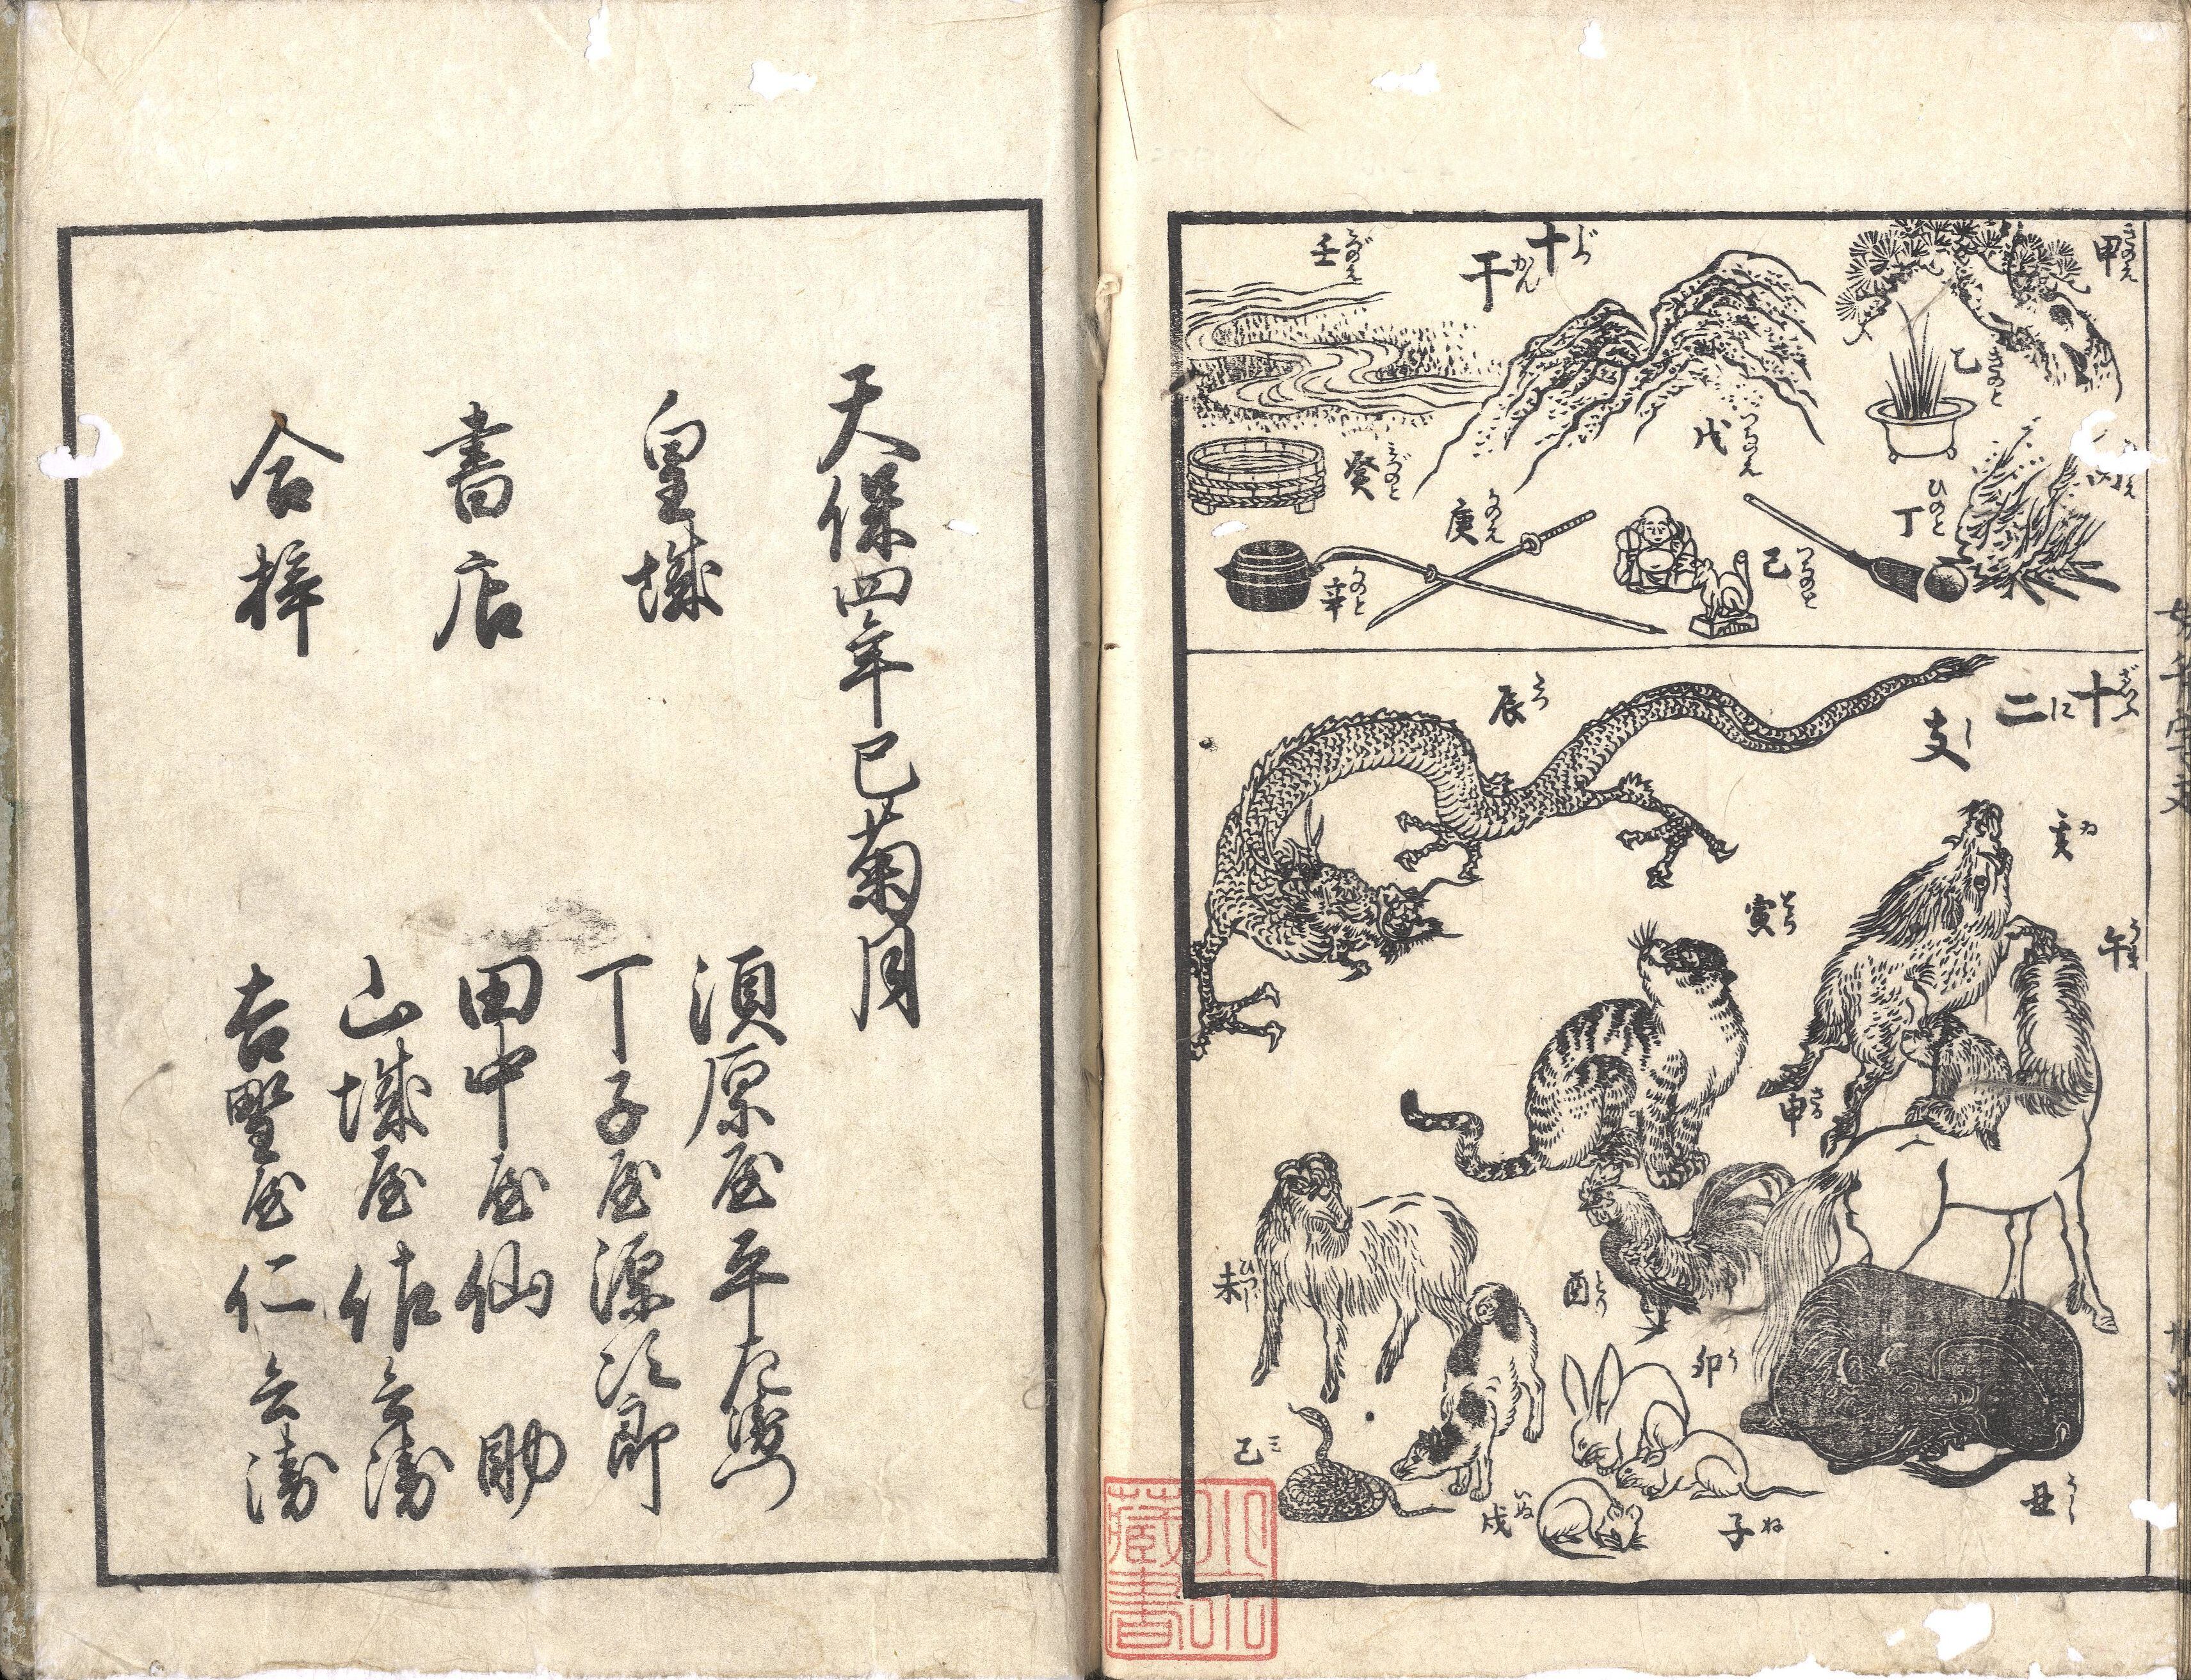 十干
じつかん
甲
きのえ
乙
きのと
丁
ひのと
戊
つちのえ
己
つちのと
庚
かのえ
辛
かのと
壬
みづのえ
癸
みづのと
十二支
に
し
辰
たつ
亥
ゐ
寅
とら
午
うま
申
さる
未
ひつじ
酉
とり
卯
う
丑
うし
子
ね
戌
いぬ
巳
ミ
藏書
天保四年巳菊月
皇城
書店
合梓
須原屋平左衛門
丁子屋源次郎
田中屋仙助
山城屋佐兵衛
吉野屋仁兵衛